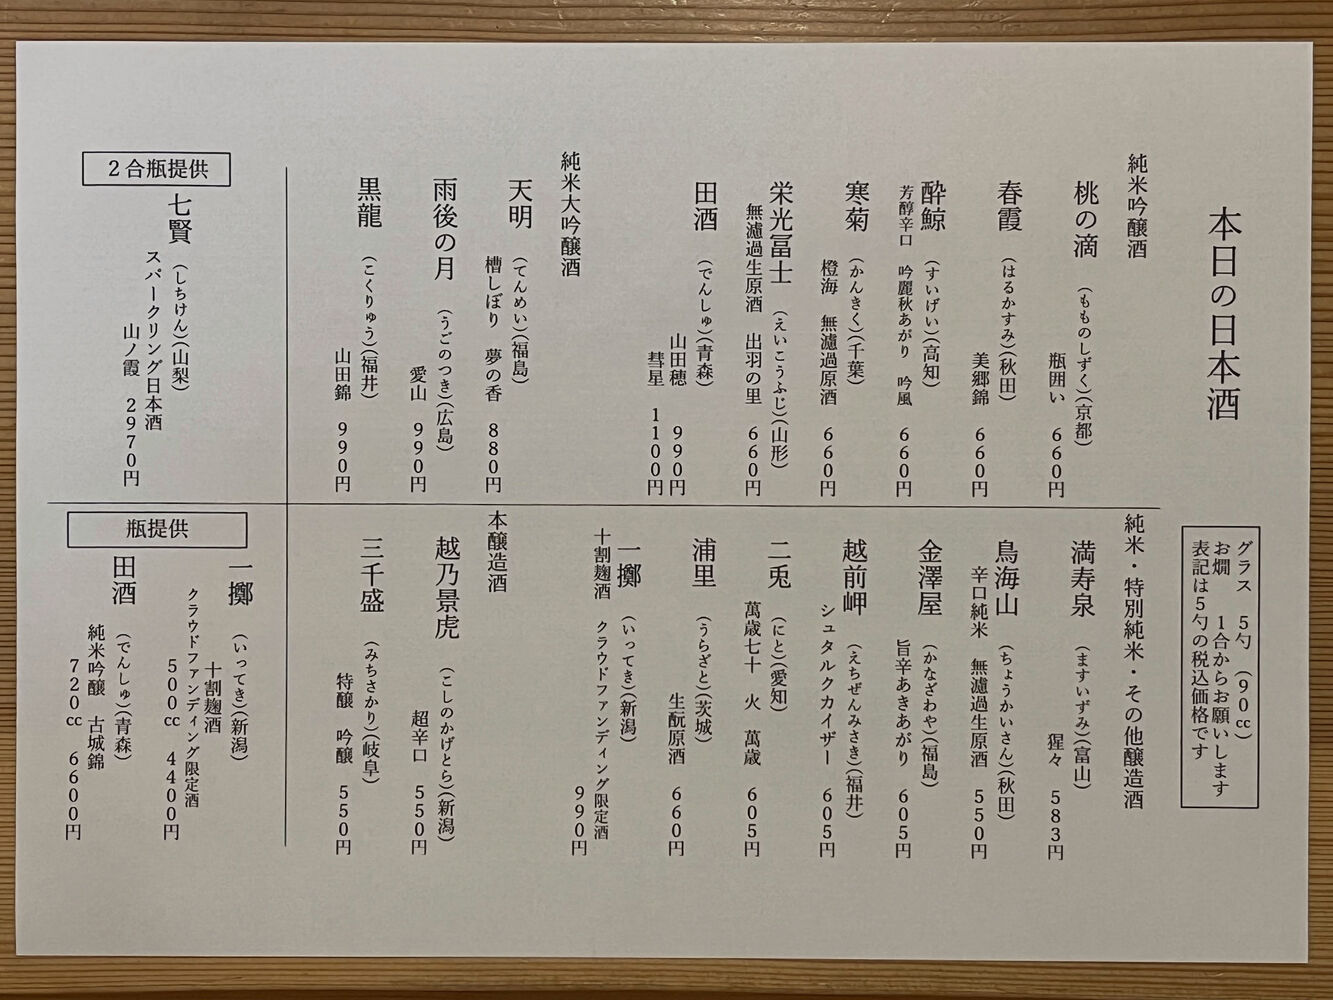 本日の日本酒
グラス　5勺　(90cc)
お燗　1合からお願いします
表記は5勺の税込価格です
純米吟醸酒
桃の滴　(もものしずく)(京都)
瓶囲い　660円
春霞　(はるかすみ)(秋田)
美郷錦　660円
酔鯨　(すいげい)(高知)
芳醇辛口　吟麗秋あがり　吟風　660円
寒菊　(かんきく)(千葉)
橙海　無濾過原酒　660円
栄光冨士　(えいこうふじ)(山形)
無濾過生原酒　出羽の里　660円
田酒　(でんしゅ)(青森)
山田穂　990円
彗星　1100円
純米大吟醸酒
天明　(てんめい)(福島)
槽しぼり　夢の香　880円
雨後の月　(うごのつき)(広島)
愛山　990円
黒龍　(こくりゅう)(福井)
山田錦　990円
純米・特別純米・その他醸造酒
満寿泉　(ますいずみ)(富山)
猩々　583円
鳥海山　(ちょうかいさん)(秋田)
辛口純米　無濾過生原酒　550円
金澤屋　(かなざわや)(福島)
旨辛あきあがり　605円
越前岬　(えちぜんみさき)(福井)
シュタルクカイザー　605円
二兎　(にと)(愛知)
萬歳七十　火　萬歳　605円
浦里　(うらざと)(茨城)
生酛原酒　660円
一擲　(いってき)(新潟)
十割麹酒　クラウドファンディング限定酒
990円
本醸造酒
越乃景虎　(こしのかげとら)(新潟)
超辛口　550円
三千盛　(みちさかり)(岐阜)
特醸　吟醸　550円
2合瓶提供
七賢　(しちけん)(山梨)
スパークリング日本酒
山ノ霞　2970円
瓶提供
一擲　(いってき)(新潟)
十割麹酒
クラウドファンディング限定酒
500cc　4400円
田酒　(でんしゅ)(青森)
純米吟醸　古城錦
720cc　6600円